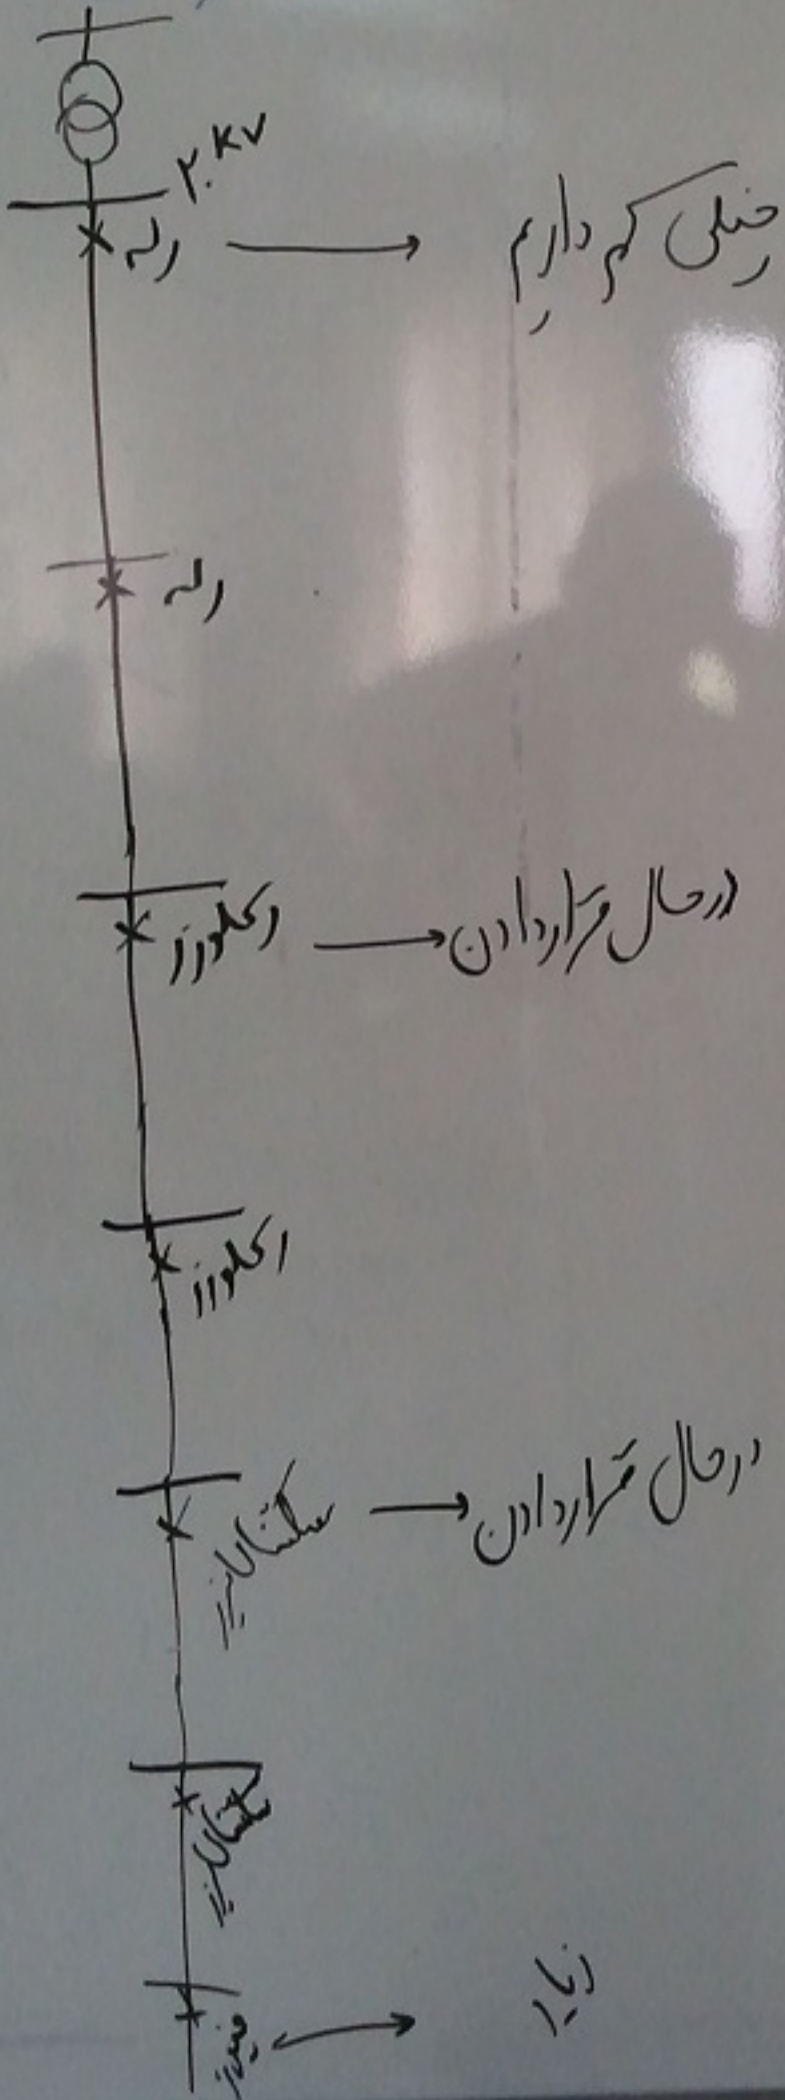 ۲۰ KV
رله → خیلی کم داریم
رله
رکلوزر → درحال قراردادن
رکلوزر
سکشنالایزر → درحال قراردادن
سکشنالایزر
فیوز → زیاد